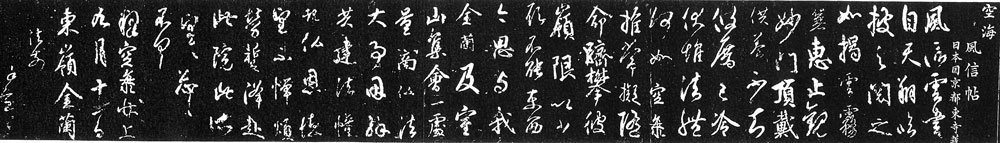 空海 風信帖
日本国京都東寺藏
風信雲書
自天翔臨
披之閱之
如揭雲霧
兼惠止觀
妙門頂戴
供養不知
攸厝已冷
伏惟法體
何如空海
推常擬隨
命躋攀彼
嶺限以少
願不能東西
今思与我
金蘭及室
山集會一處
量商仏法
大事因緣
共建法幢
報仏恩德
望不憚煩
勞蹔降赴
此院此所
望々忩々
不具
釋空海狀上
九月十一日
東嶺金蘭
法前